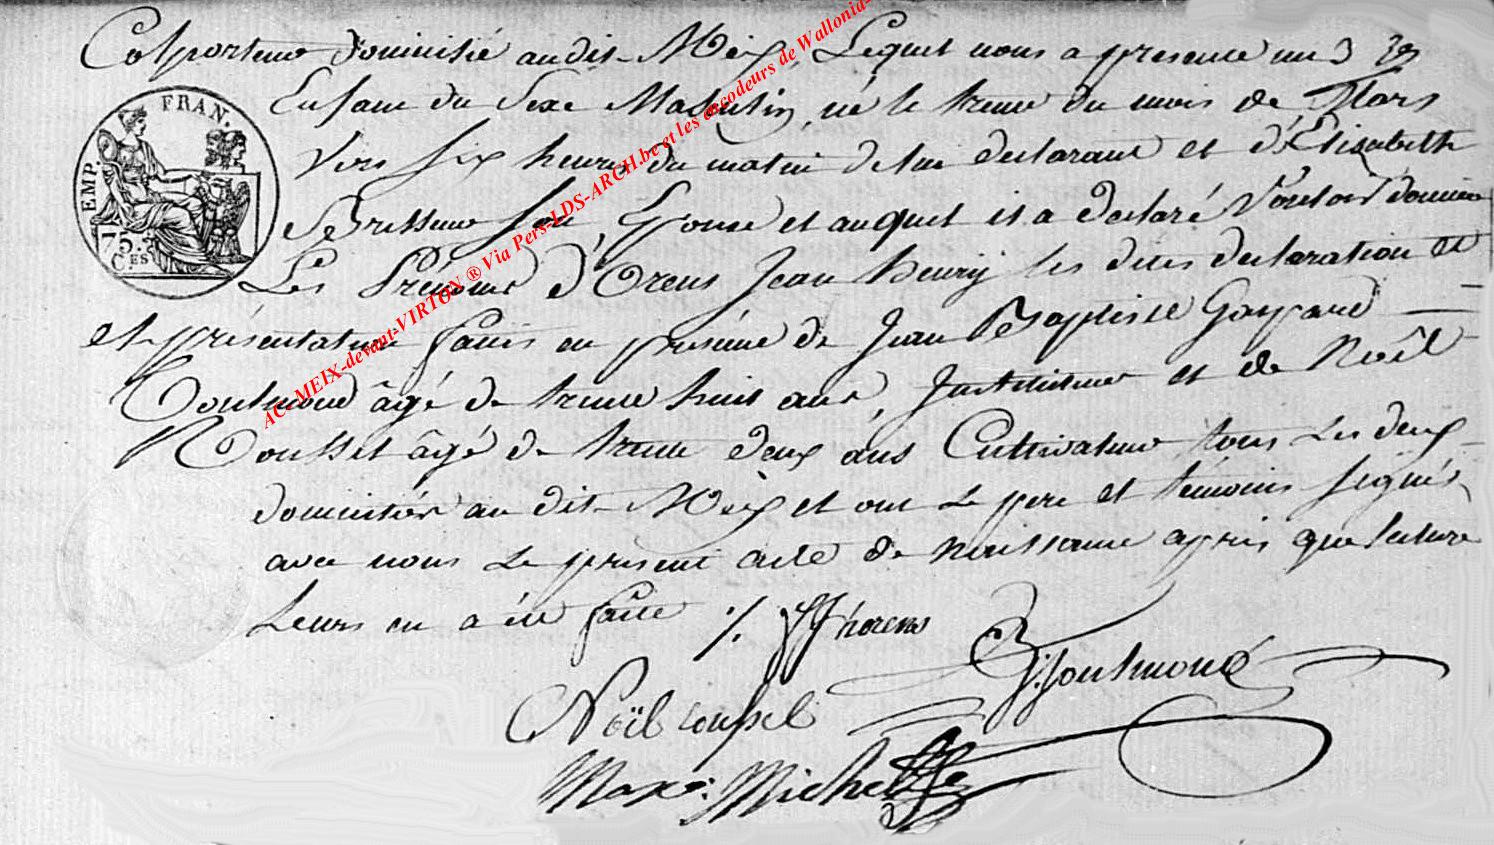 Colporteur Domicilié audit Meix, Lequel nous a presenté un
Enfant du Sexe Masculin, né le trente du mois de Mars
Vers six heures du matin de lui declarant et d'Elisabeth
son Epouse et auquel il a declaré Vouloir donner
Les Prénoms d'Orens Jean henry les dites declaration et
et présentation faites en présence de Jean Baptiste Gaspard
Toulmond âgé de trente huit ans, Instituteur et de Noël
Roussel âgé de trente deux ans Cultivateur tous les deux
domiciliés au dit Meix et ont le pere et témoins signés
avec nous le present acte de naissance après que lecture
Leurs en a été faite ./.
J: Toulmond
Noël roussel
Max: Michel
EMP. FRAN.
75.
C.ES
AC-MEIX-devant-VIRTON ® Via Pers-LDS-ARCH.be et les encodeurs de Wallonia-